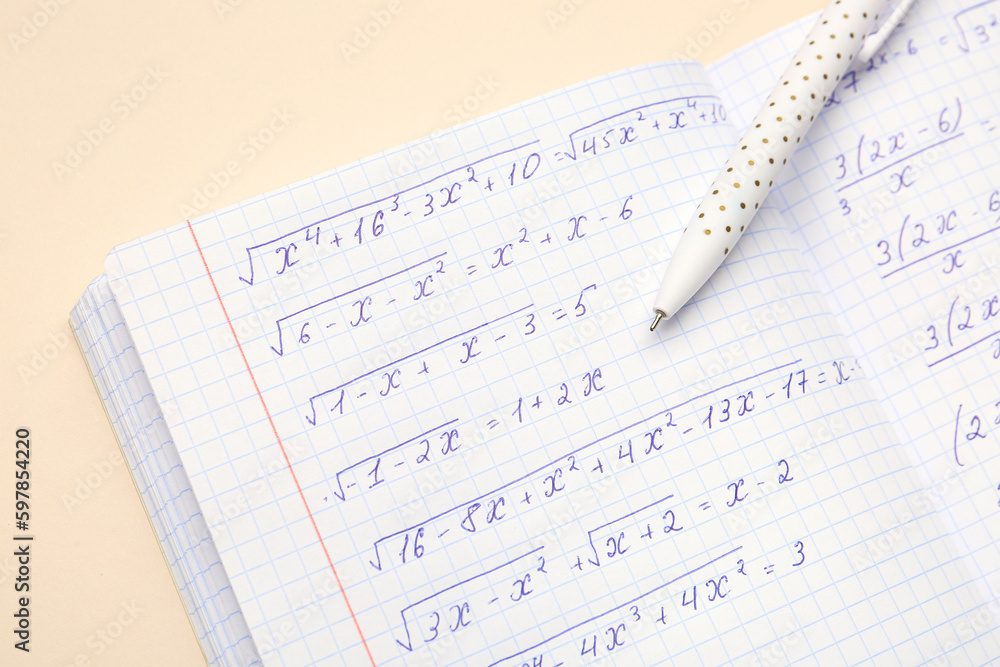 √(x⁴ + 16³ - 3x² + 10) = √(45x² + x⁴ + 10
√(6 - x - x²) = x² + x - 6
√(1 - x + x - 3) = 5
√(-1 - 2x) = 1 + 2x
√(16 - 8x + x² + 4x² - 13x - 17) = x -
√(3x - x²) + √(x + 2) = x - 2
- 4x³ + 4x² = 3
27^(2x-6) = √3
3(2x - 6) =
x
3
3(2x - 6
x
3(2x
(2
Adobe Stock | #597854220